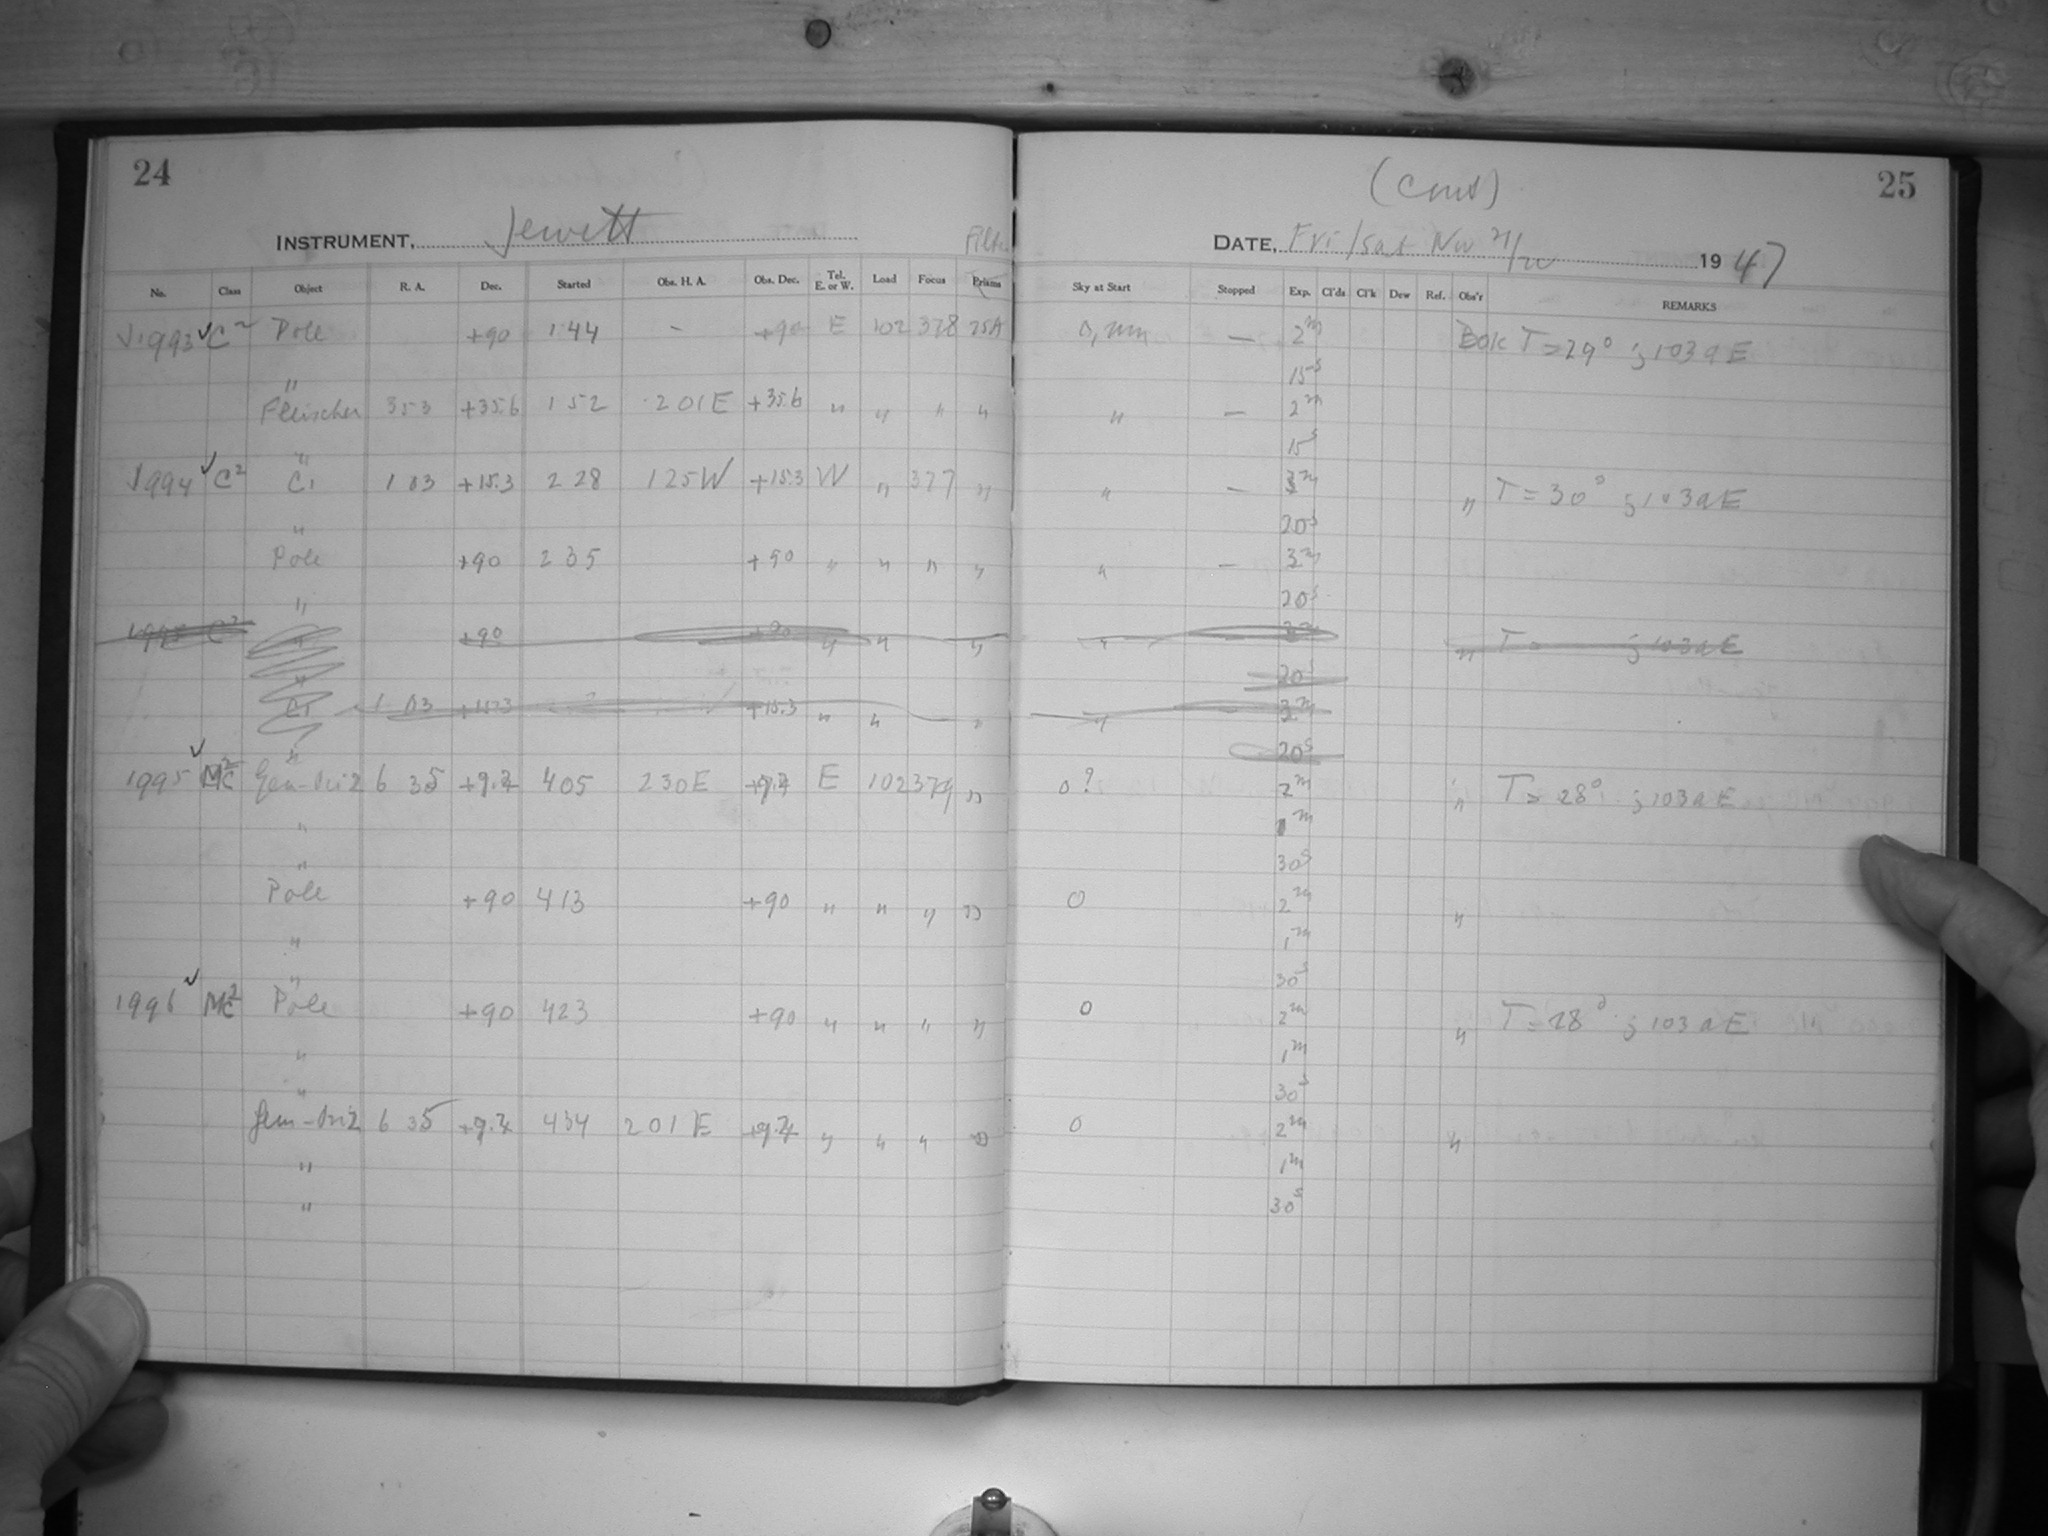 24
(Cont)
25
INSTRUMENT, Jewett
DATE, Fri/Sat Nov 21/ 1947
Filter
No. Class Object R. A. Dec. Started Obs. H. A. Obs. Dec. Tel. E. or W. Load Focus Prisms Sky at Start Stopped Exp. Cl'ds Cl'k Dew Ref. Obs'r REMARKS
√1993 √ C2 Pole +90 1 44 - +90 E 102 378 25A 0, — 2m Bok T=29° ; 103aE
" 15s
Fleischer 353 +35.6 1 52 2 01E +35.6 " " " " " — 2m
" 15s
√1994 √ C2 C1 1 03 +15.3 2 28 1 25W +15.3 W " 377 " " — 3m " T=30° ; 103aE
" 20s
Pole +90 2 35 +90 " " " " " — 3m
" 20s
1995 C2 " +90 +90 " " " " 3m " T= ; 103aE
" 20s
C1 1 03 +15.3 +15.3 " " " " 3m
" 20s
1995 √ MC2 Gem-Ori2 6 35 +9.2 4 05 2 30E +9.2 E 102 379 " 0? 2m " T=28° ; 103aE
" 1m
" 30s
Pole +90 4 13 +90 " " " " 0 2m "
" 1m
" 30s
1996 √ MC2 Pole +90 4 23 +90 " " " " 0 2m " T=28° ; 103aE
" 1m
" 30s
Gem-Ori2 6 35 +9.2 4 34 2 01E +9.2 " " " " 0 2m "
" 1m
" 30s